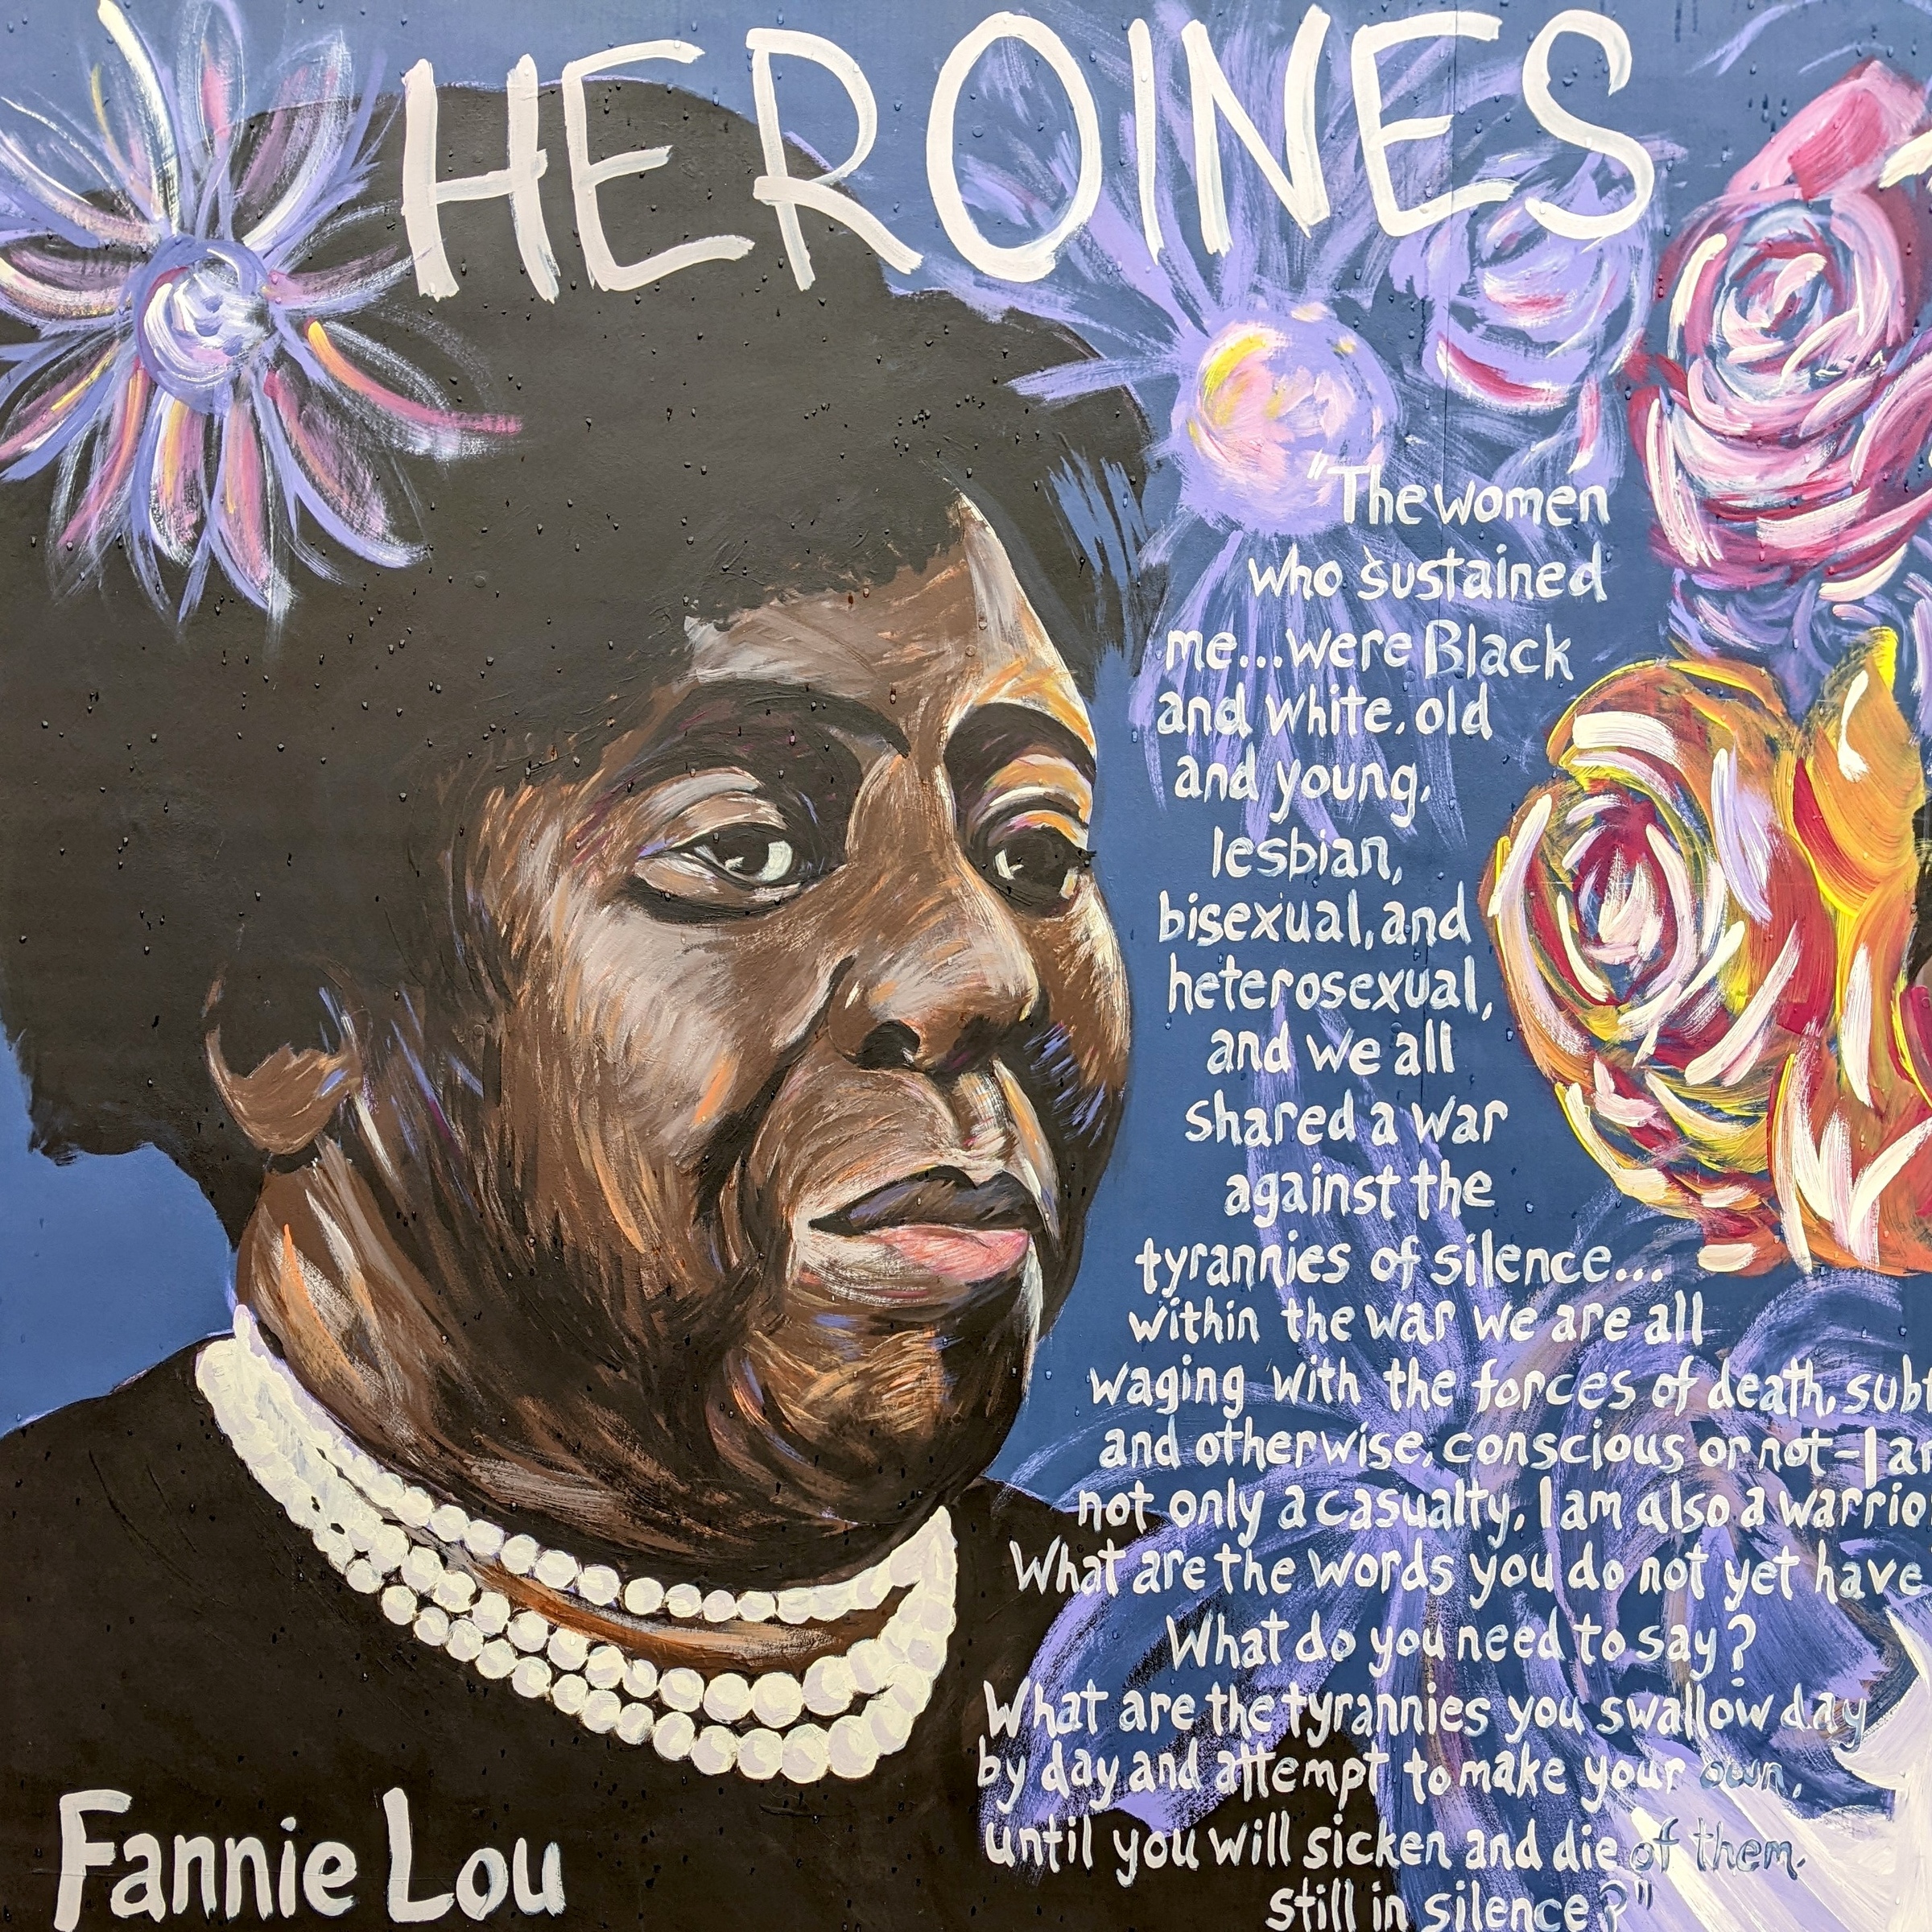 HEROINES
"The women
who sustained
me...were Black
and white, old
and young,
lesbian,
bisexual, and
heterosexual,
and we all
shared a war
against the
tyrannies of silence...
within the war we are all
waging with the forces of death, subt
and otherwise, conscious or not-I a
not only a casualty, I am also a warrio
What are the words you do not yet have
What do you need to say?
What are the tyrannies you swallow day
by day and attempt to make your own,
until you will sicken and die of them,
still in silence?"
Fannie Lou